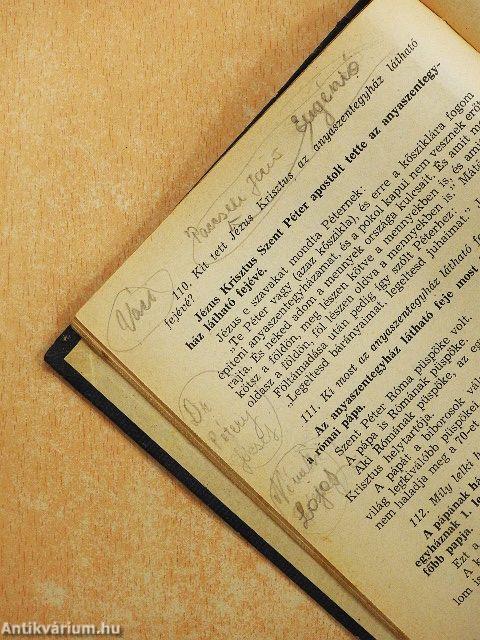 Eugénió
Jenő
110. Kit tett Jézus Krisztus az anyaszentegyház látható
fejévé?
Jézus Krisztus Szent Péter apostolt tette az anyaszentegy-
ház látható fejévé.
Jézus e szavakat mondta Péternek:
„Te Péter vagy (azaz kőszikla), és erre a kősziklára fogom
építeni anyaszentegyházamat és a pokol kapui nem vesznek erőt
rajta. És neked adom a mennyek országa kulcsait. És amit me
kötsz a földön, meg lészen kötve a mennyekben is, és amit
oldasz a földön, föl lészen oldva a mennyekben is."
Föltámadása után pedig így szólt Péterhez:
„Legeltesd bárányaimat, legeltesd juhaimat."
111. Ki most az anyaszentegyház látható feje
Az anyaszentegyház látható feje most
római pápa.
Szent Péter Róma püspöke volt.
A pápa is Rómának püspöke.
Aki Rómának püspöke, az eg
Krisztus helytartója
A pápát a bíborosok vál
világ legkiválóbb püspökei
nem haladja meg a 70-et
112. Mily lelki h
A pápának
egyháznak 1. le
főbb papja.
Ezt a
A k
lom is
Váci
Dr.
Lajos
Antikvárium.hu